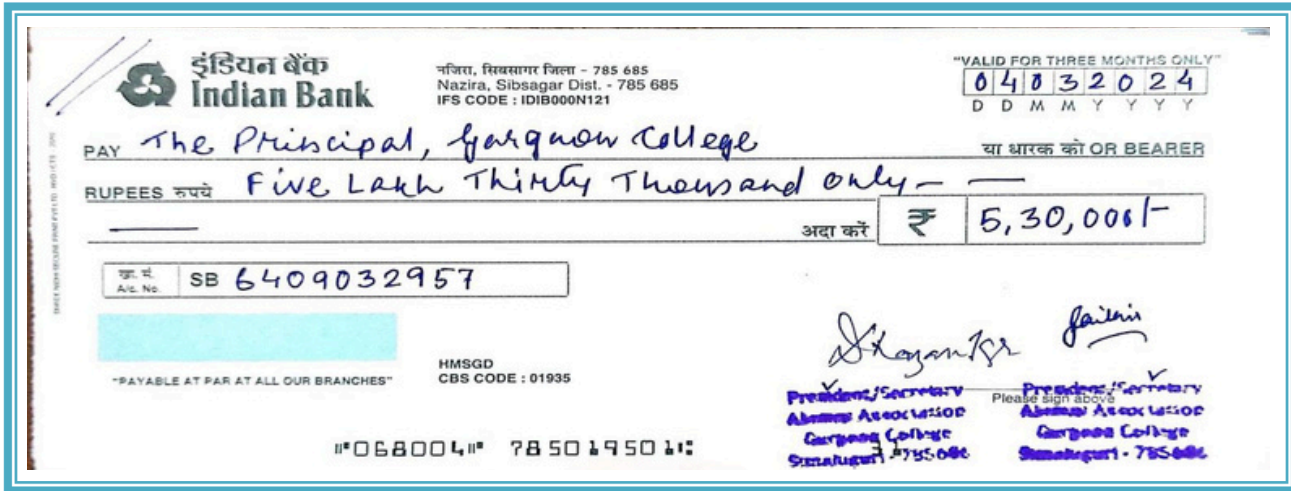 इंडियन बैंक
Indian Bank
नजिरा, सिबसागर जिला - 785 685
Nazira, Sibsagar Dist. - 785 685
IFS CODE : IDIB000N121
"VALID FOR THREE MONTHS ONLY"
04032024
D D M M Y Y Y Y
PAY The Principal, Gargaon College
या धारक को OR BEARER
RUPEES रुपये Five Lakh Thirty Thousand only
अदा करें ₹ 5,30,000/-
खा. सं.
A/c. No. SB 6409032957
HMSGD
CBS CODE : 01935
"PAYABLE AT PAR AT ALL OUR BRANCHES"
Please sign above
President/Secretary President/Secretary
Alumni Association Alumni Association
Gargaon College Gargaon College
Simaluguri - 785686 Simaluguri - 785686
⑈068004⑈ 785019501⑆